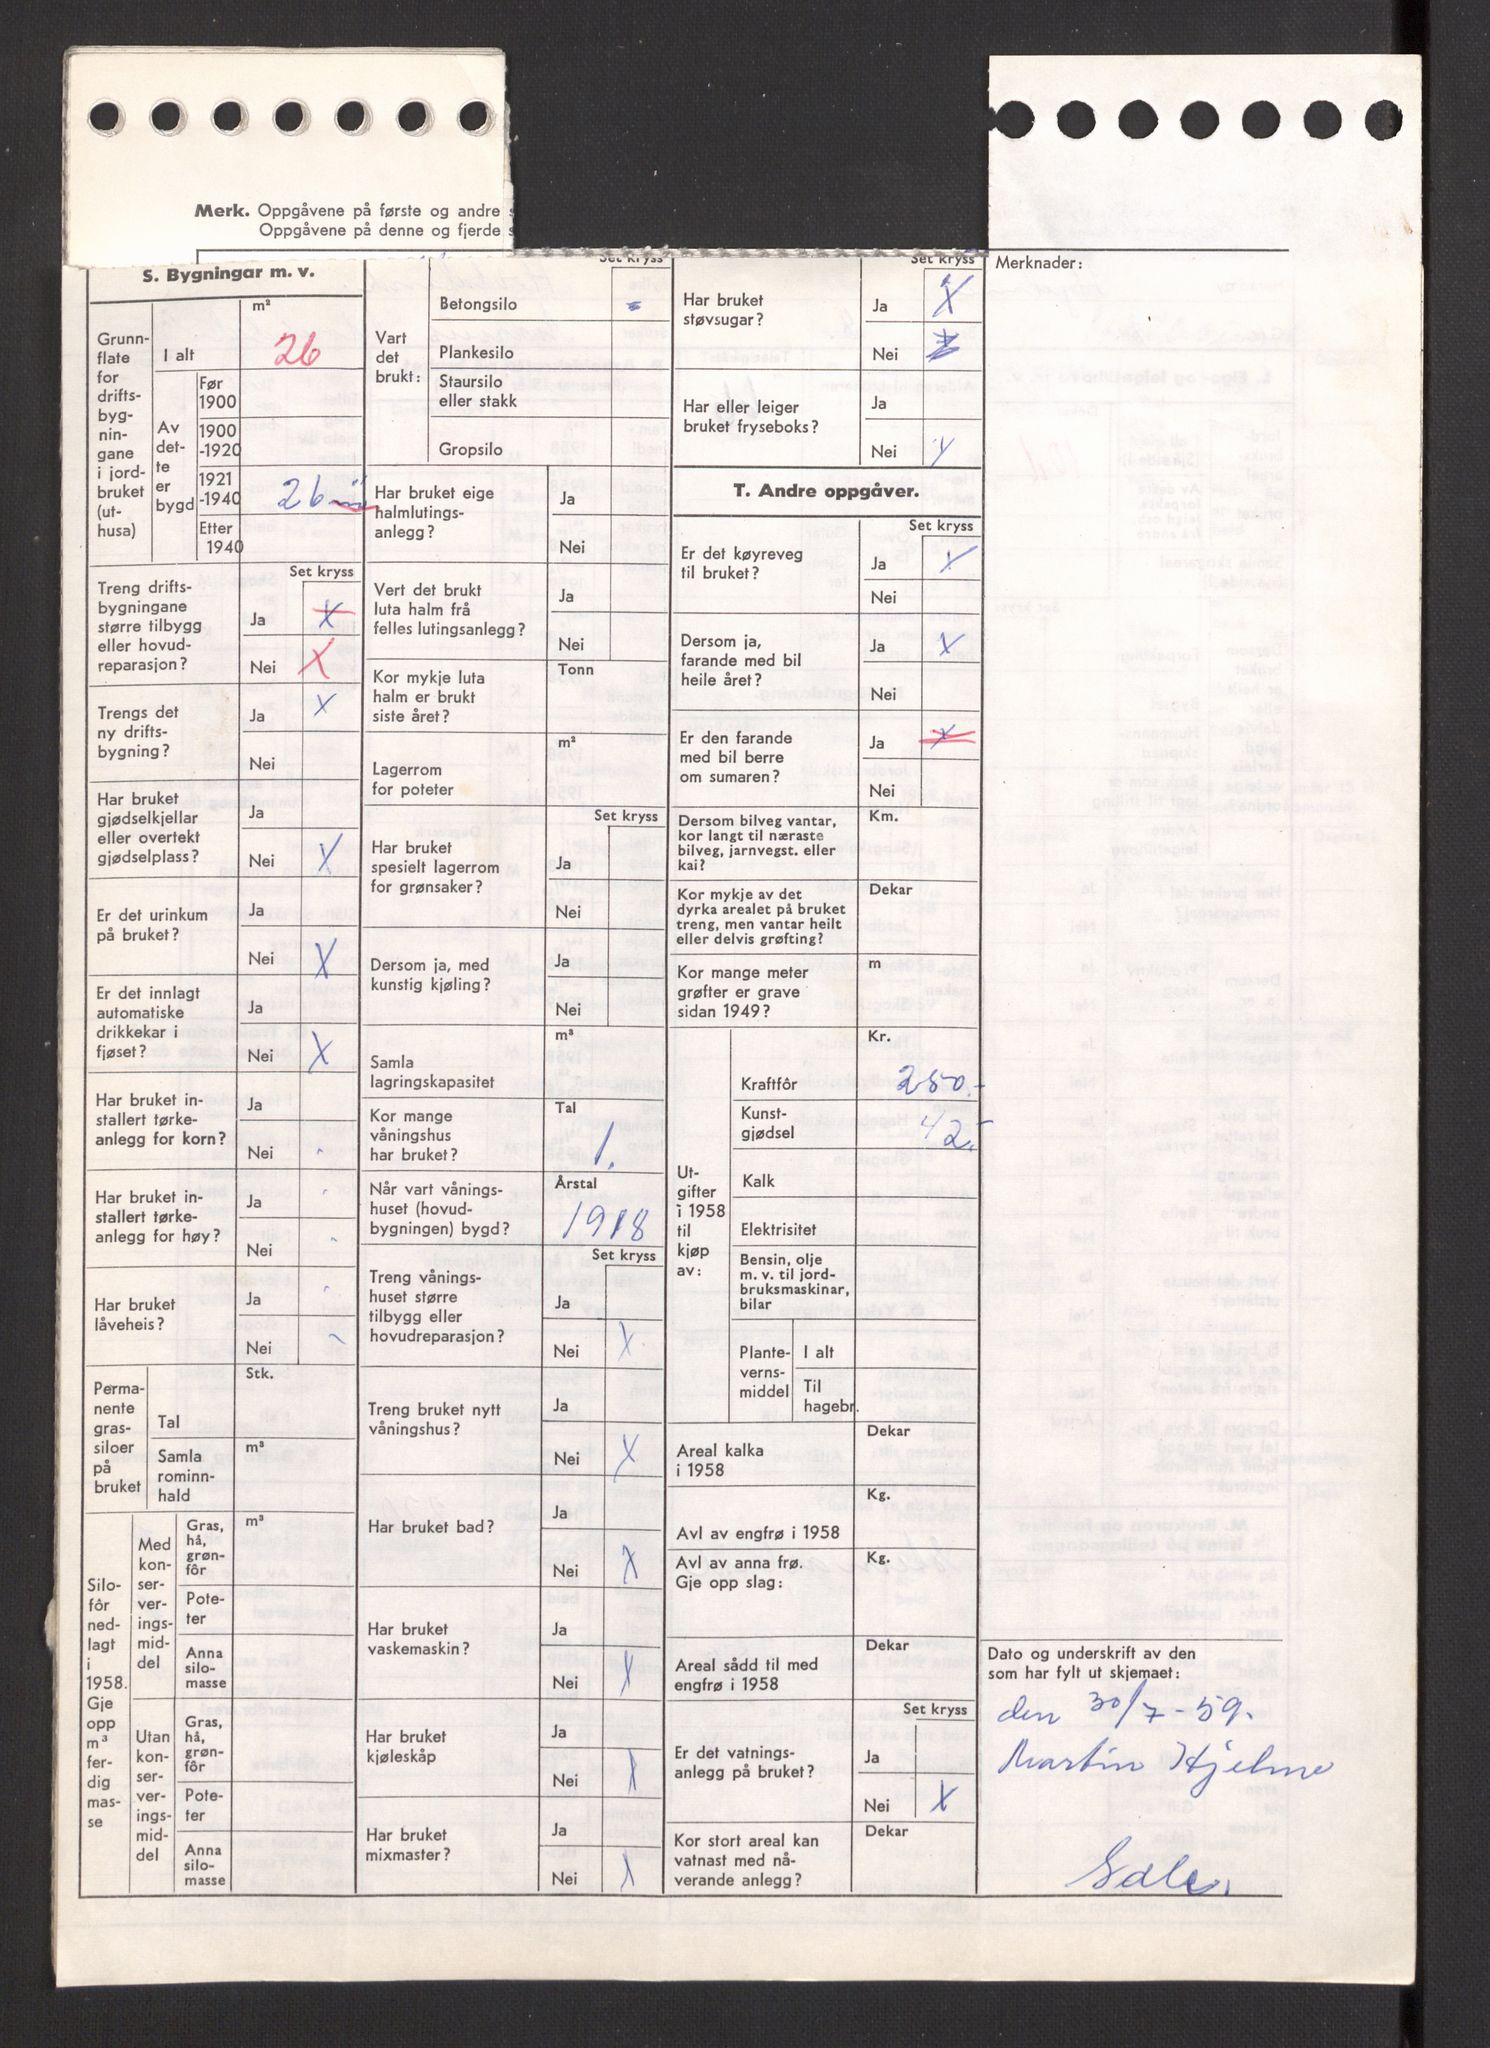 Merk. Oppgåvene på første og andre
Oppgåvene på denne og fjerde
S. Bygningar m. v.
m²
Grunn-
flate
for
drifts-
byg-
nin-
gane
i jord-
bruket
(ut-
husa)
I alt
26
Av
det-
te
er
bygd
Før
1900
1900
-1920
1921
-1940
26
Etter
1940
Set kryss
Treng drifts-
bygningane
større tilbygg
eller hovud-
reparasjon?
Ja X
Nei X
Trengs det
ny drifts-
bygning?
Ja X
Nei
Har bruket
gjødselkjellar
eller overtekt
gjødselplass?
Ja
Nei X
Er det urinkum
på bruket?
Ja
Nei X
Er det innlagt
automatiske
drikkekar i
fjøset?
Ja
Nei X
Har bruket in-
stallert tørke-
anlegg for korn?
Ja
Nei
Har bruket in-
stallert tørke-
anlegg for høy?
Ja
Nei
Har bruket
låveheis?
Ja
Nei
Perma-
nente
gras-
siloer
på
bruket
Stk.
Tal
m³
Samla
rominn-
hald
Silo-
fôr
ned-
lagt
i
1958.
Gje
opp
m³
fer-
dig
mas-
se
Med
kon-
ser-
ver-
ings-
mid-
del
m³
Gras,
hå,
grøn-
fôr
Pote-
ter
Anna
silo-
masse
Utan
kon-
ser-
ver-
ings-
mid-
del
Gras,
hå,
grøn-
fôr
Pote-
ter
Anna
silo-
masse
Set kryss
Vart
det
brukt:
Betongsilo
Plankesilo
Staursilo
eller stakk
Gropsilo
Har bruket eige
halmlutings-
anlegg?
Ja
Nei
Vert det brukt
luta halm frå
felles lutingsanlegg?
Ja
Nei
Kor mykje luta
halm er brukt
siste året?
Tonn
Lagerrom
for poteter
m²
Set kryss
Har bruket
spesielt lagerrom
for grønsaker?
Ja
Nei
Dersom ja, med
kunstig kjøling?
Ja
Nei
Samla
lagringskapasitet
m³
Kor mange
våningshus
har bruket?
Tal
1.
Når vart vånings-
huset (hovud-
bygningen) bygd?
Årstal
1918
Set kryss
Treng vånings-
huset større
tilbygg eller
hovudreparasjon?
Ja
Nei X
Treng bruket nytt
våningshus?
Ja
Nei X
Har bruket bad?
Ja
Nei X
Har bruket
vaskemaskin?
Ja
Nei X
Har bruket
kjøleskåp
Ja
Nei X
Har bruket
mixmaster?
Ja
Nei X
Set kryss
Har bruket
støvsugar?
Ja X
Nei
Har eller leiger
bruket fryseboks?
Ja
Nei X
T. Andre oppgåver.
Set kryss
Er det køyreveg
til bruket?
Ja X
Nei
Dersom ja,
farande med bil
heile året?
Ja X
Nei
Er den farande
med bil berre
om sumaren?
Ja X
Nei
Dersom bilveg vantar,
kor langt til næraste
bilveg, jarnvegst. eller
kai?
Km.
Kor mykje av det
dyrka arealet på bruket
treng, men vantar heilt
eller delvis grøfting?
Dekar
Kor mange meter
grøfter er grave
sidan 1949?
m
Ut-
gifter
i 1958
til
kjøp
av:
Kr.
Kraftfôr
250.-
Kunst-
gjødsel
42.-
Kalk
Elektrisitet
Bensin, olje
m. v. til jord-
bruksmaskinar,
bilar
Plante-
verns-
middel
I alt
Til
hagebr.
Areal kalka
i 1958
Dekar
Avl av engfrø i 1958
Kg.
Avl av anna frø.
Gje opp slag:
Kg.
Areal sådd til med
engfrø i 1958
Dekar
Set kryss
Er det vatnings-
anlegg på bruket?
Ja
Nei X
Kor stort areal kan
vatnast med nå-
verande anlegg?
Dekar
Merknader:
Dato og underskrift av den
som har fylt ut skjemaet:
den 30/7-59.
Martin Hjelme